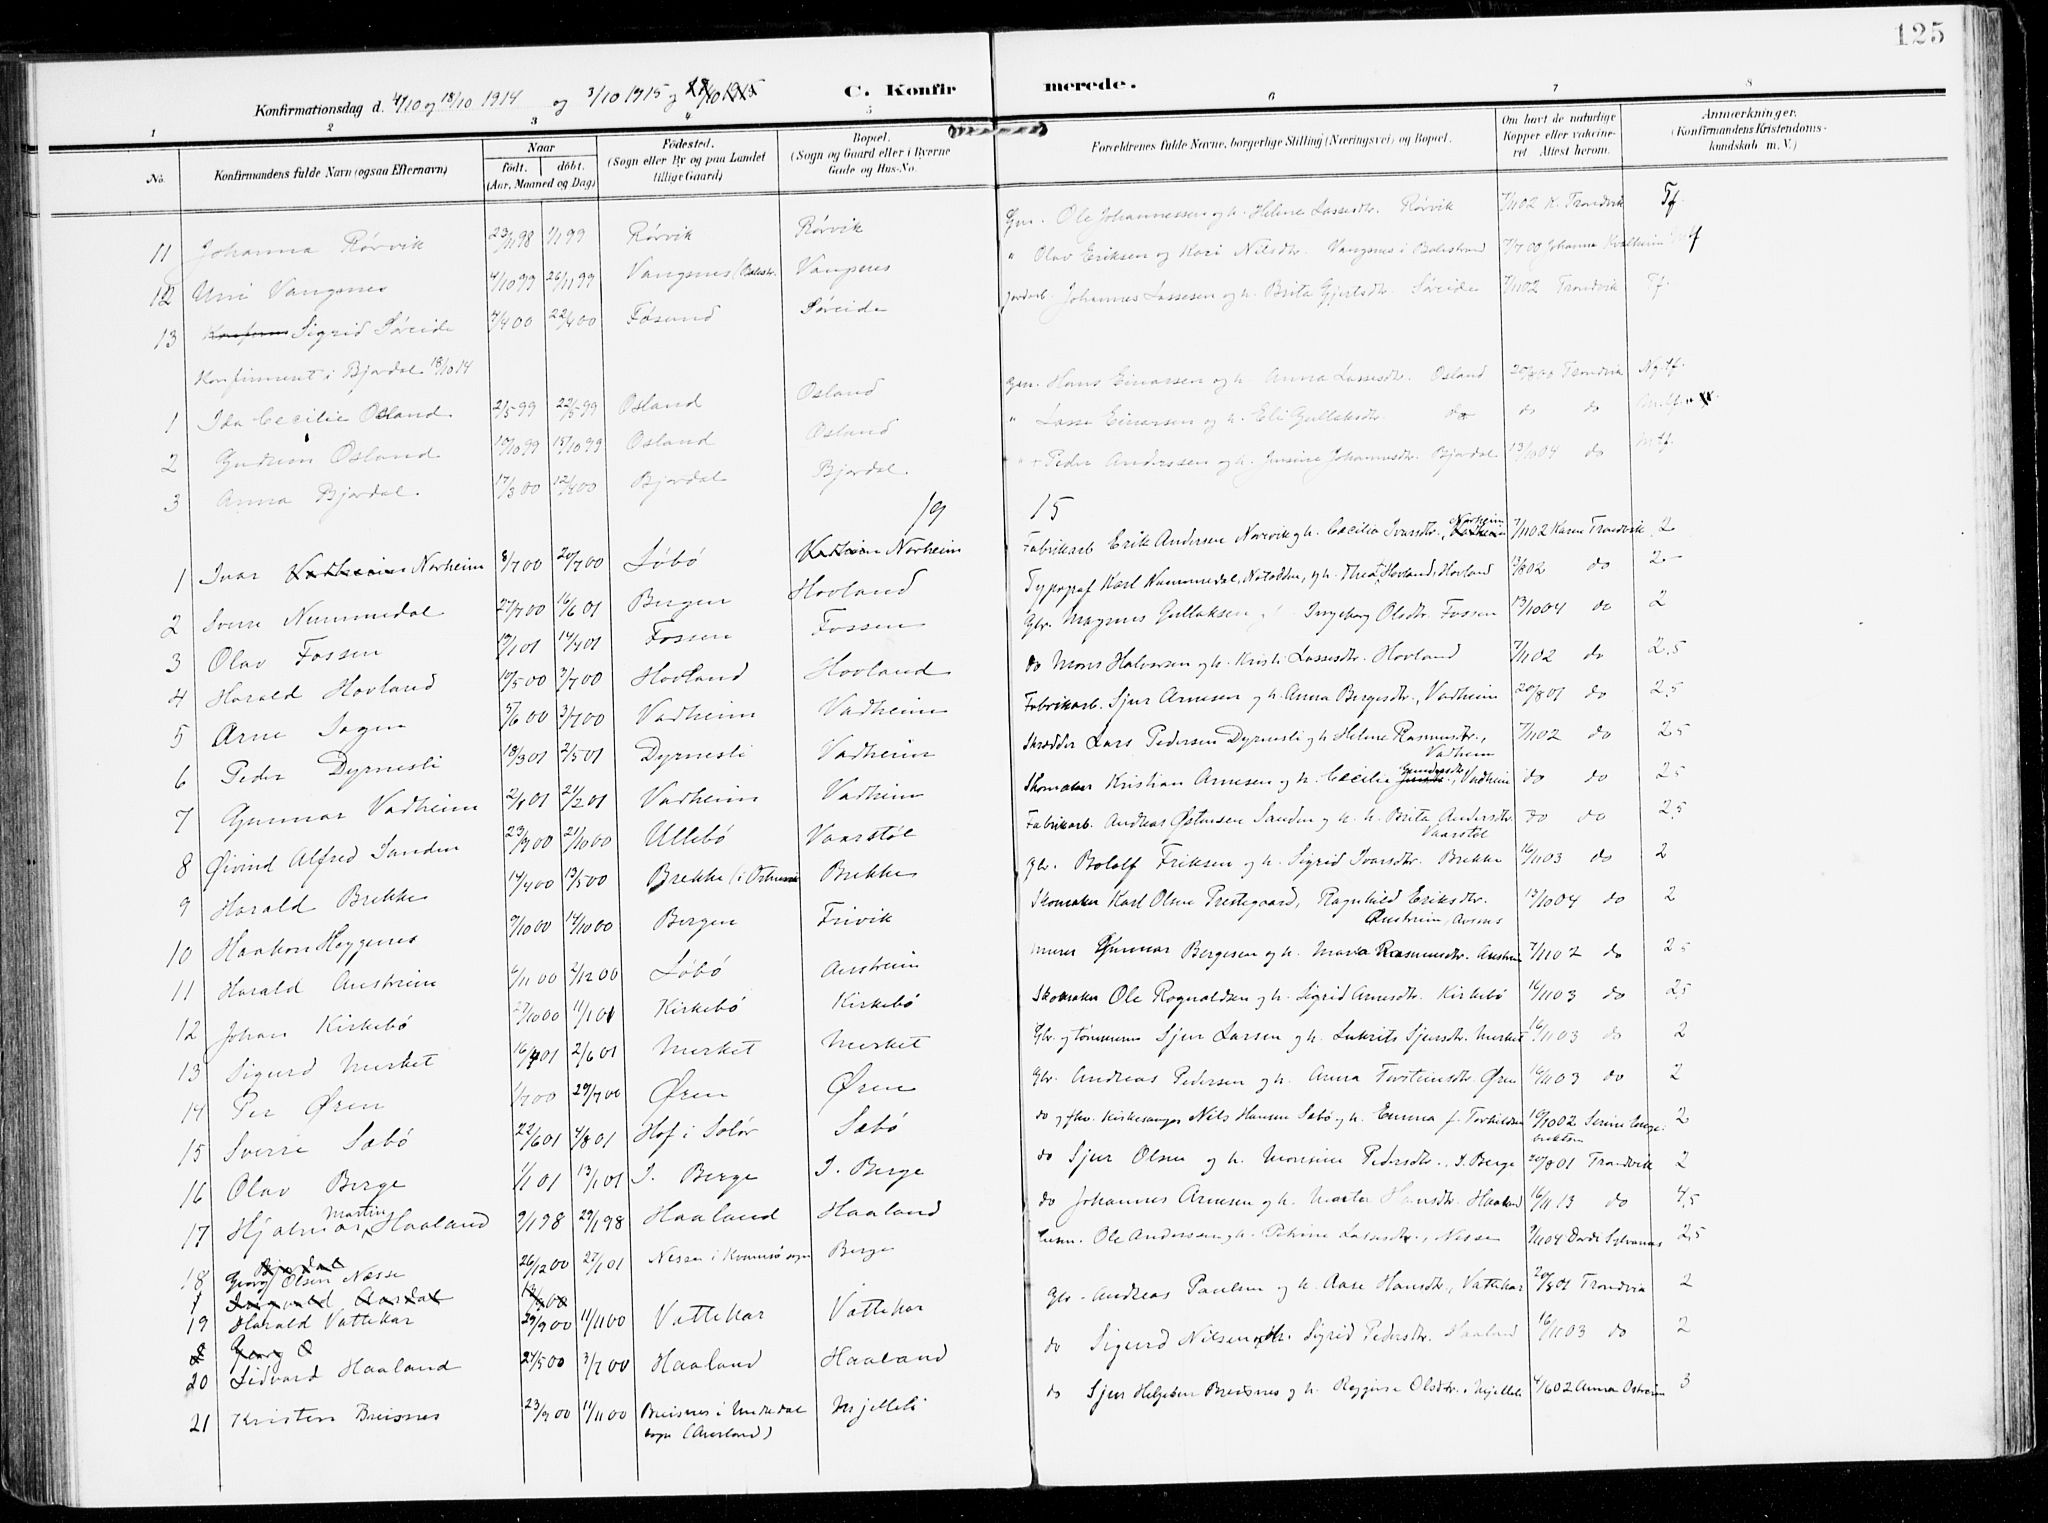 125
Konfirmationsdag d. 4/10 og 18/10 1914 og 3/10 1915 og
C. Konfirmerede.
1 2 3 4 5 6 7 8
No. Konfirmandens fulde Navn (ogsaa Efternavn) Naar født. døbt. (Aar, Maaned og Dag) Fødested. (Sogn eller By og paa Landet tillige Gaard) Bopæl. (Sogn og Gaard eller i Byerne Gade og Hus-No. Forældrenes fulde Navne, borgerlige Stilling (Næringsvei) og Bopæl. Om havt de naturlige Kopper eller vakcineret. Attest herom. Anmærkninger. (Konfirmandens Kristendomskundskab m. V.)
11 Johanna Rørvik 23/11 98 1/1 99 Rørvik Rørvik Gm. Ole Johannessen og h. Helene Lassesdtr. Rørvik 7/1102 K. Trondvik Tf.
12 Uni Vangsnes 4/10 99 26/11 99 Vangsnes (Balestr. Vangsnes " Olav Eriksen og Kari Nilsdtr. Vangsnes i Balestrand 7/7 00 Johanna
13 Sigrid Søreide 4/4 00 22/4 00 Føsund Søreide Jordarb. Johannes Lassesen og h. Brita Gjertsdtr. Søreide 7/1102 Trondvik Tf.
Konfirmert i Bjordal 18/10 14
1 Ida Cecilie Osland 2/5 99 22/5 99 Osland Osland Gm. Hans Einarsen og h. Anna Lassesdtr. Osland Trondvik
2 Gudrun Osland 10/10 99 15/10 99 Osland Osland " Lasse Einarsen og h. Eli Gullaksdtr. do do do
3 Anna Bjordal 17/3 00 12/4 00 Bjordal Bjordal " Peder Anderssen og h. Jensine Johannesdtr. Bjordal 13/1004 do Mtf.
19 15
1 Ivar Norheim 8/7 00 20/7 00 Løbø Norheim Fabrikarb. Erik Andersen Norevik og h. Cecilia Ivarsdtr., Norheim 7/1102 Karen Trondvik 2
2 Sverre Nummedal 27/7 00 16/6 01 Bergen Hovland Typograf Karl Nummedal, Notodden, og h. Thea Hovland, Hovland 13/802 do 2-
3 Olav Fossen 19/1 01 14/4 01 Fossen Fossen Gbr. Magnus Gullaksen Ingeborg Olsdtr. Fossen 13/1004 do 2
4 Harald Hovland 10/5 00 3/7 00 Hovland Hovland do Mons Halvorsen og h. Kristi Lassesdtr. Hovland 7/1102 do 2,5
5 Arne Sagen 5/6 00 3/7 00 Vadheim Vadheim Fabrikarb. Sjur Arnesen og h. Anna Bergesdtr., Vadheim 20/801 do 2,5
6 Peder Dyrnesli 18/3 01 2/5 01 Dyrnesli Vadheim Skrædder Lars Pedersen Dyrnesli og h. Helene Rasmusdtr., Vadheim 7/1102 do 25
7 Gunnar Vadheim 2/1 01 21/2 01 Vadheim Vadheim Skomaker Kristian Arnesen og h. Cecilia Gundersdtr., Vadheim do do 25
8 Øivind Alfred Sanden 23/9 00 21/10 00 Ullebø Vaarstøl Fabrikarb. Andreas Østensen Sanden og h. Brita Andersdtr. Vaarstøl do do 2,5
9 Harald Brekke 14/4 00 13/5 00 Brekke Brekke Gbr. Bololf Eriksen og h. Sigrid Ivarsdtr. Brekke 16/1103 do 2
10 Haakon Høygenes 9/10 00 14/10 00 Bergen Frivik Skomaker Karl Olsen Prestegaard, Ragnhild Eriksdtr. 13/1004 do 2
11 Harald Austreim 6/11 00 2/12 00 Løbø Austreim Murer Gunnar Bergesen og h. Maria Rasmusdtr. Austreim 7/1102 do 25
12 Johan Kirkebø 27/10 00 11/1 01 Kirkebø Kirkebø Skomaker Ole Rognaldsen og h. Sigrid Arnesdtr. Kirkebø 16/1103 do 2,5
13 Sigurd Merket 16/4 01 2/6 01 Merket Merket Gbr. og tømmerm Sjur Larsen og h. Lukrits Sjursdtr. Merket 16/1103 do 2
14 Per Øren 1/7 00 29/7 00 Øren Øren Gbr. Andreas Pedersen og h. Anna Torsteinsdtr. Øren 16/1103 do 2
15 Sverre Sæbø 22/6 01 4/8 01 Hof i Solør Sæbø do og fhv. Kirkesanger Nils Hansen Sæbø og h. Emma f. Torkildsen 19/1002 2
16 Olav Berge 1/1 01 13/1 01 I. Berge I. Berge do Sjur Olsen og h. Monsine Pedersdtr., I. Berge 20/801 Trondvik 2
17 Hjalmar Martin Haaland 9/1 98 29/1 98 Haaland Haaland do Johannes Arnesen og h. Marta Hansdtr. Haaland 16/1113 do 4,5
18 Georg Olsen Næsse 26/12 00 27/1 01 Nesse i Kvamsø sogn Berge Ole Andersen og h. Petrine Lassesdtr., Nesse 2,5
19 Harald Vattekar 29/9 00 11/11 00 Vattekar Vattekar Gbr. Andreas Paulsen og h. Aase Hansdtr., Vattekar 20/801 Trondvik 2
20 Lidvard Haaland 24/5 00 3/7 00 Haaland Haaland do Sigurd Nilsen og h. Sigrid Pedersdtr. Haaland 16/1103 do 2
21 Kristen Breisnes 23/9 00 11/11 00 Breisnes i Undredal sogn (Aurland) Mjelleli do Sjur Helgesen Breisnes og h. Olsdtr. Mjelleli 4/602 Anna Ostreim 3